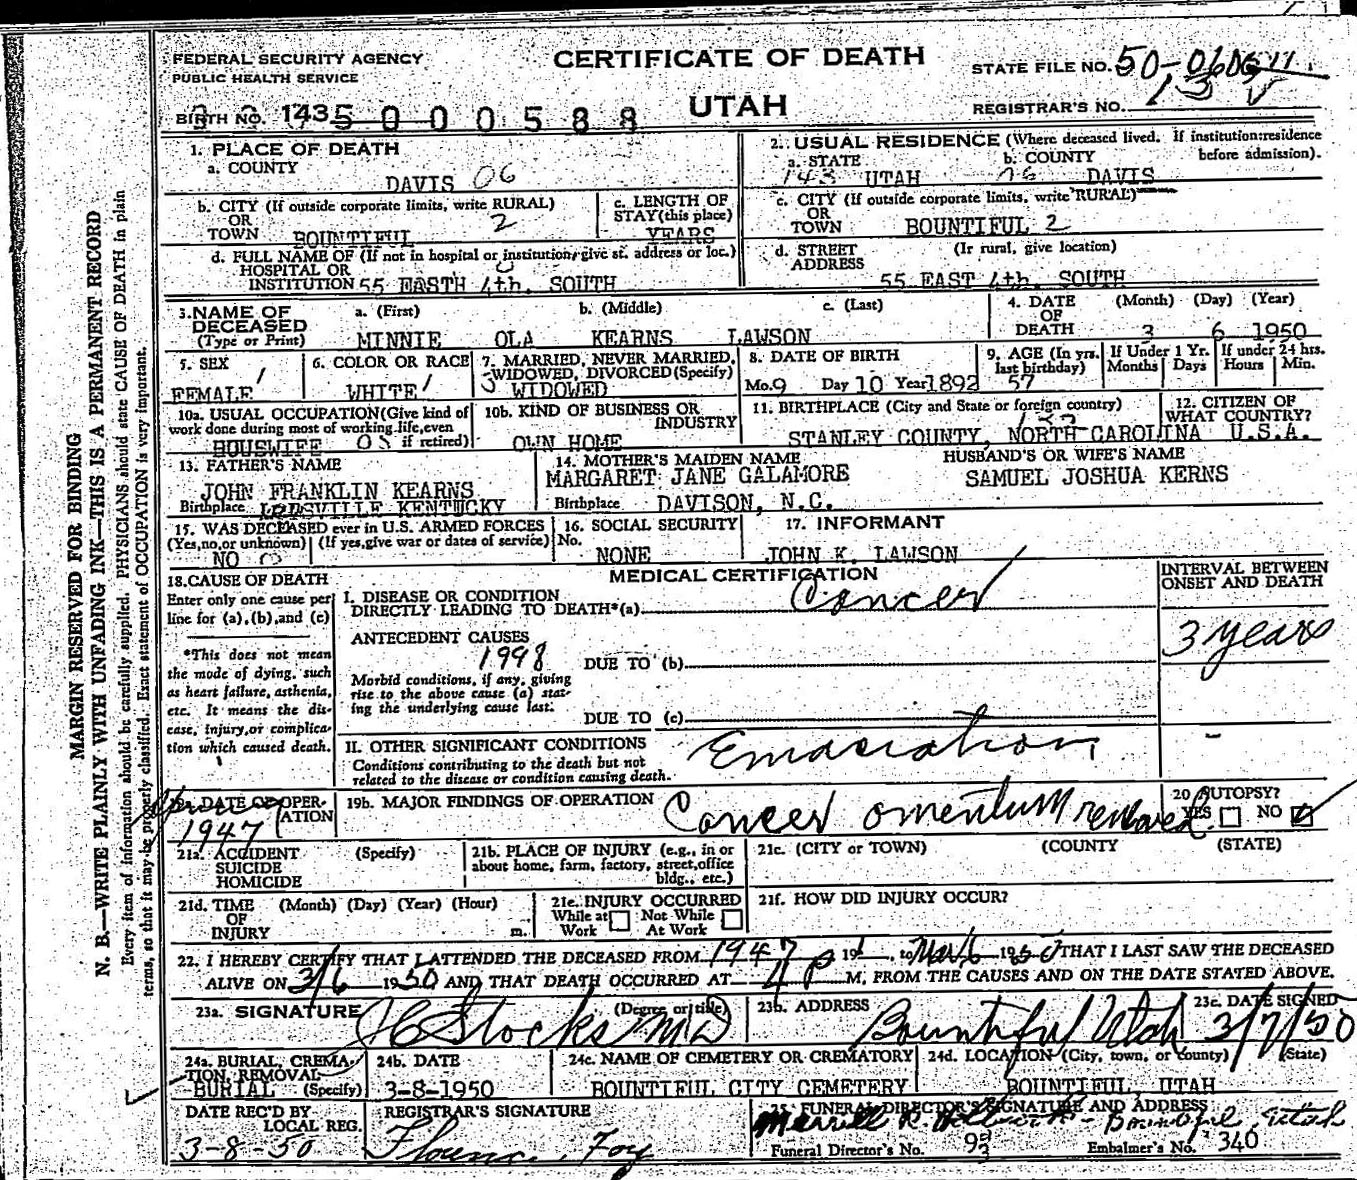 CERTIFICATE OF DEATH
UTAH
FEDERAL SECURITY AGENCY
PUBLIC HEALTH SERVICE
STATE FILE NO. 50-
REGISTRAR'S NO. 13
BIRTH NO. 1435000588
1. PLACE OF DEATH
a. COUNTY
DAVIS 06
b. CITY (If outside corporate limits, write RURAL)
OR
TOWN BOUNTIFUL 2
c. LENGTH OF
STAY (this place)
YEARS
d. FULL NAME OF (If not in hospital or institution, give st. address or loc.)
HOSPITAL OR
INSTITUTION 55 EASTH 4th. SOUTH
2. USUAL RESIDENCE (Where deceased lived. If institution: residence
before admission).
a. STATE b. COUNTY
143 UTAH 06 DAVIS
c. CITY (If outside corporate limits, write RURAL)
OR
TOWN BOUNTIFUL 2
d. STREET (If rural, give location)
ADDRESS
55 EAST 4th. SOUTH
3. NAME OF
DECEASED
(Type or Print)
a. (First) b. (Middle) c. (Last)
MINNIE OLA KEARNS LAWSON
4. DATE (Month) (Day) (Year)
OF
DEATH 3 6 1950
5. SEX
FEMALE
6. COLOR OR RACE
WHITE
7. MARRIED, NEVER MARRIED,
WIDOWED, DIVORCED (Specify)
WIDOWED
8. DATE OF BIRTH
Mo. 9 Day 10 Year 1892
9. AGE (In yrs.
last birthday)
57
If Under 1 Yr.
Months Days
If under 24 hrs.
Hours Min.
10a. USUAL OCCUPATION (Give kind of
work done during most of working life, even
HOUSWIFE if retired)
10b. KIND OF BUSINESS OR
INDUSTRY
OWN HOME
11. BIRTHPLACE (City and State or foreign country)
STANLEY COUNTY, NORTH CAROLINA
12. CITIZEN OF
WHAT COUNTRY?
U.S.A.
13. FATHER'S NAME
JOHN FRANKLIN KEARNS
Birthplace KENTUCKY
14. MOTHER'S MAIDEN NAME
MARGARET JANE GALAMORE
Birthplace DAVISON, N.C.
HUSBAND'S OR WIFE'S NAME
SAMUEL JOSHUA KERNS
15. WAS DECEASED ever in U.S. ARMED FORCES
(Yes, no, or unknown) (If yes, give war or dates of service)
NO
16. SOCIAL SECURITY
No.
NONE
17. INFORMANT
JOHN K. LAWSON
18. CAUSE OF DEATH
Enter only one cause per
line for (a), (b), and (c)
*This does not mean
the mode of dying, such
as heart failure, asthenia,
etc. It means the dis-
ease, injury, or complica-
tion which caused death.
MEDICAL CERTIFICATION
I. DISEASE OR CONDITION
DIRECTLY LEADING TO DEATH*(a) Cancer
ANTECEDENT CAUSES
1998 DUE TO (b)
Morbid conditions, if any, giving
rise to the above cause (a) stat-
ing the underlying cause last.
DUE TO (c)
II. OTHER SIGNIFICANT CONDITIONS
Conditions contributing to the death but not
related to the disease or condition causing death.
Emaciation
INTERVAL BETWEEN
ONSET AND DEATH
3 years
19a. DATE OF OPER-
ATION
1947
19b. MAJOR FINDINGS OF OPERATION
Cancer omentum removed.
20. AUTOPSY?
YES NO
21a. ACCIDENT (Specify)
SUICIDE
HOMICIDE
21b. PLACE OF INJURY (e.g., in or
about home, farm, factory, street, office
bldg., etc.)
21c. (CITY or TOWN) (COUNTY) (STATE)
21d. TIME (Month) (Day) (Year) (Hour)
OF
INJURY m.
21e. INJURY OCCURRED
While at Not While
Work At Work
21f. HOW DID INJURY OCCUR?
22. I HEREBY CERTIFY THAT I ATTENDED THE DECEASED FROM 1947 19 , to Mar 6 1950 THAT I LAST SAW THE DECEASED
ALIVE ON 3/6 1950 AND THAT DEATH OCCURRED AT 4 P M. FROM THE CAUSES AND ON THE DATE STATED ABOVE.
23a. SIGNATURE (Degree or title)
Stocks MD
23b. ADDRESS
Bountiful Utah
23c. DATE SIGNED
3/7/50
24a. BURIAL, CREMA-
TION, REMOVAL
BURIAL (Specify)
24b. DATE
3-8-1950
24c. NAME OF CEMETERY OR CREMATORY
BOUNTIFUL CITY CEMETERY
24d. LOCATION (City, town, or county) (State)
BOUNTIFUL, UTAH
DATE REC'D BY
LOCAL REG.
3-8-50
REGISTRAR'S SIGNATURE
Foy
25. FUNERAL DIRECTOR'S SIGNATURE AND ADDRESS
Merrill R. - Bountiful, Utah
Funeral Director's No. 93 Embalmer's No. 340
MARGIN RESERVED FOR BINDING
N. B.—WRITE PLAINLY WITH UNFADING INK—THIS IS A PERMANENT RECORD
Every item of information should be carefully supplied. PHYSICIANS should state CAUSE OF DEATH in plain
terms, so that it may be properly classified. Exact statement of OCCUPATION is very important.